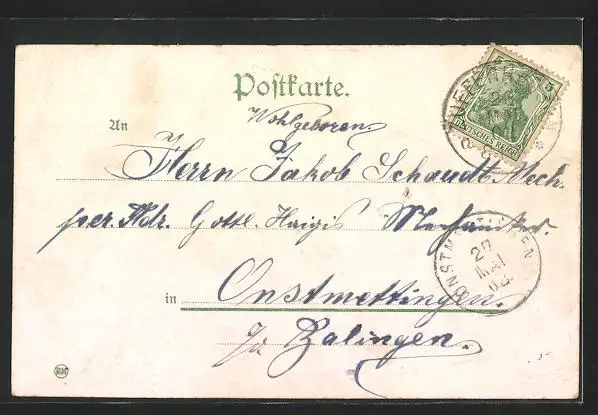 Postkarte.
Wohlgeboren.
An Herrn Jakob Schaudt Mech.
per Adr. Gottl. Haigis Mechaniker.
in Onstmettingen.
Balingen.
5 5
DEUTSCHES REICH
ONSTMETTINGEN
27
MAI